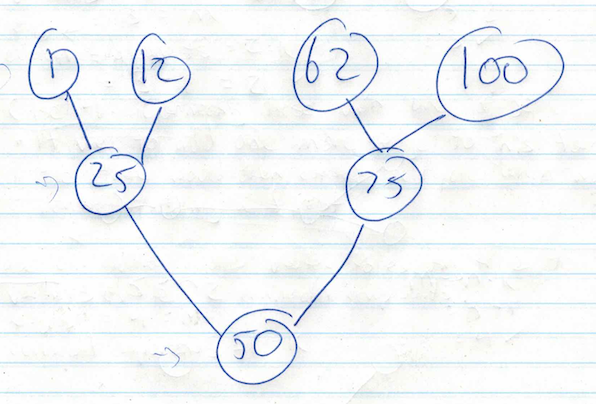 12 62 100
25 75
50